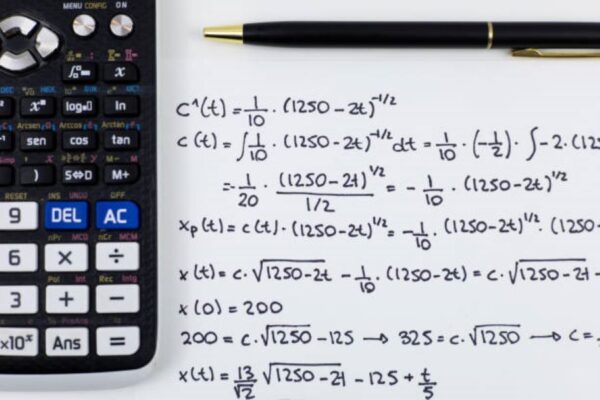 MENU CONFIG ON
x
DEC HEX BIN OCT
log▪□ ln
Arcsen Arccos Arctan
sen cos tan
) S⇔D M+
RESET INS UNDO OFF
9 DEL AC
nPr MCD nCr MCM
6 × ÷
Pol Int Rec Intg
3 + −
×10ˣ Ans =
C'(t) = 1/10 · (1250 − 2t)^(-1/2)
c(t) = ∫ 1/10 · (1250 − 2t)^(-1/2) dt = 1/10 · (−1/2) · ∫ −2 · (125
= −1/20 · (1250 − 2t)^(1/2) / (1/2) = − 1/10 · (1250 − 2t)^(1/2)
xₚ(t) = c(t) · (1250 − 2t)^(1/2) = − 1/10 · (1250 − 2t)^(1/2) · (1250 −
x(t) = c · √(1250 − 2t) − 1/10 · (1250 − 2t) = c · √(1250 − 2t) −
x(0) = 200
200 = c · √1250 − 125 → 325 = c · √1250 → c =
x(t) = 13/√2 √(1250 − 2t) − 125 + t/5